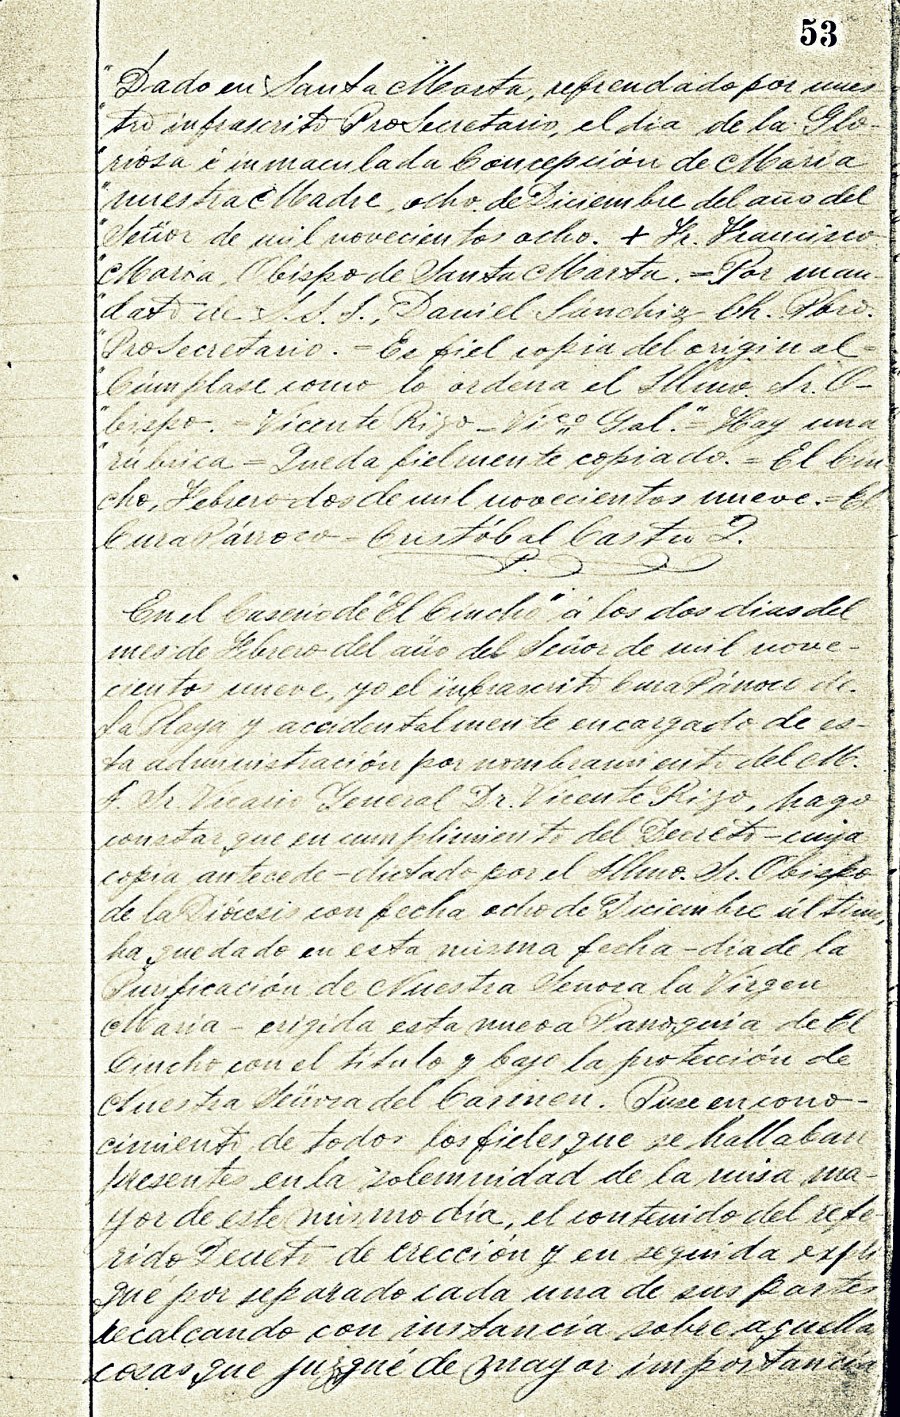 53
"Dado en Santa Marta, refrendado por nues
"tro infrascrito ProSecretario, el dia de la Glo-
"riosa é inmaculada Concepción de Maria
"nuestra Madre, ocho de Diciembre del año del
"Señor de mil novecientos ocho. + Fr. Francisco
"Maria, Obispo de Santa Marta. = Por man-
"dato de S.S.S., Daniel Sánchiz Ch. Pbro.
"ProSecretario. = Es fiel copia del original =
"Cúmplase como lo ordena el Illmo. Sr. O-
"bispo. = Vicente Rizo - Vico. Gal." = Hay una
"rúbrica = Queda fielmente copiado. = El Cin
cho, Febrero dos de mil novecientos nueve. = El
Cura Párroco - Cristóbal Castro P.
P.
En el Caserio de "El Cincho" á los dos dias del
mes de Febrero del año del Señor de mil nove-
cientos nueve, yo el infrascrito Cura Párroco de
La Playa y accidentalmente encargado de es-
ta administración por nombramiento del M.
I. Sr Vicario General Dr. Vicente Rizo, hago
constar que en cumplimiento del Decreto - cuya
copia antecede - dictado por el Illmo. Sr. Obispo
de la Diócesis con fecha ocho de Diciembre último,
ha quedado en esta misma fecha - dia de la
Purificación de Nuestra Señora la Virgen
Maria - erigida esta nueva Parroquia de El
Cincho con el título y bajo la protección de
Nuestra Señora del Carmen. Puse en cono-
cimiento de todos los fieles que se hallaban
presentes en la solemnidad de la misa ma-
yor de este mismo día, el contenido del refe-
rido Decreto de erección y en seguida expli
qué por separado cada una de sus partes
recalcando con instancia sobre aquella
cosas que juzgué de mayor importancia